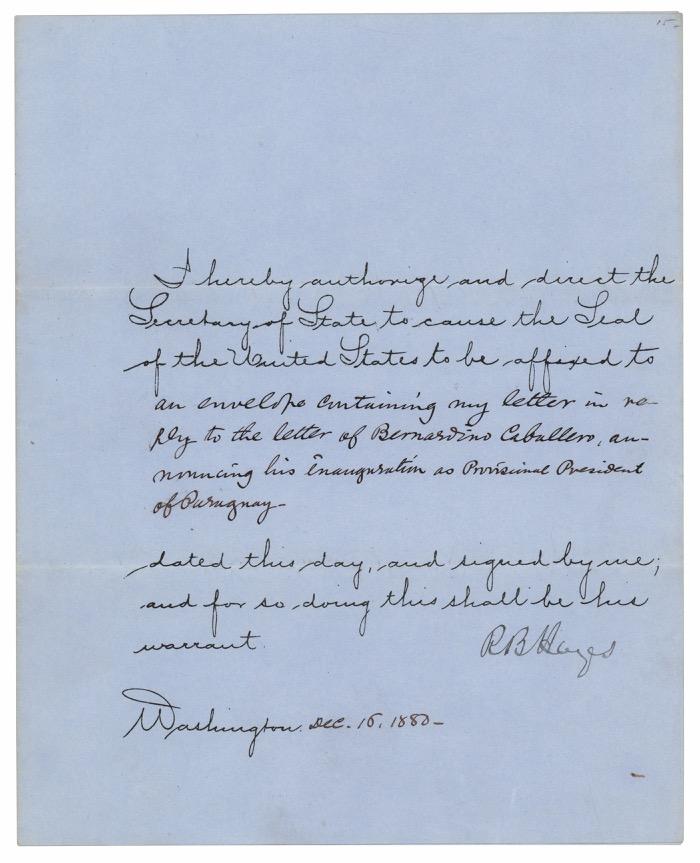 15-
I hereby authorize and direct the
Secretary of State to cause the Seal
of the United States to be affixed to
an envelope containing my letter in re-
ply to the letter of Bernardino Caballero, an-
nouncing his inauguration as Provisional President
of Paraguay-
dated this day, and signed by me;
and for so doing this shall be his
warrant.
RB Hayes
Washington. Dec. 16, 1880-